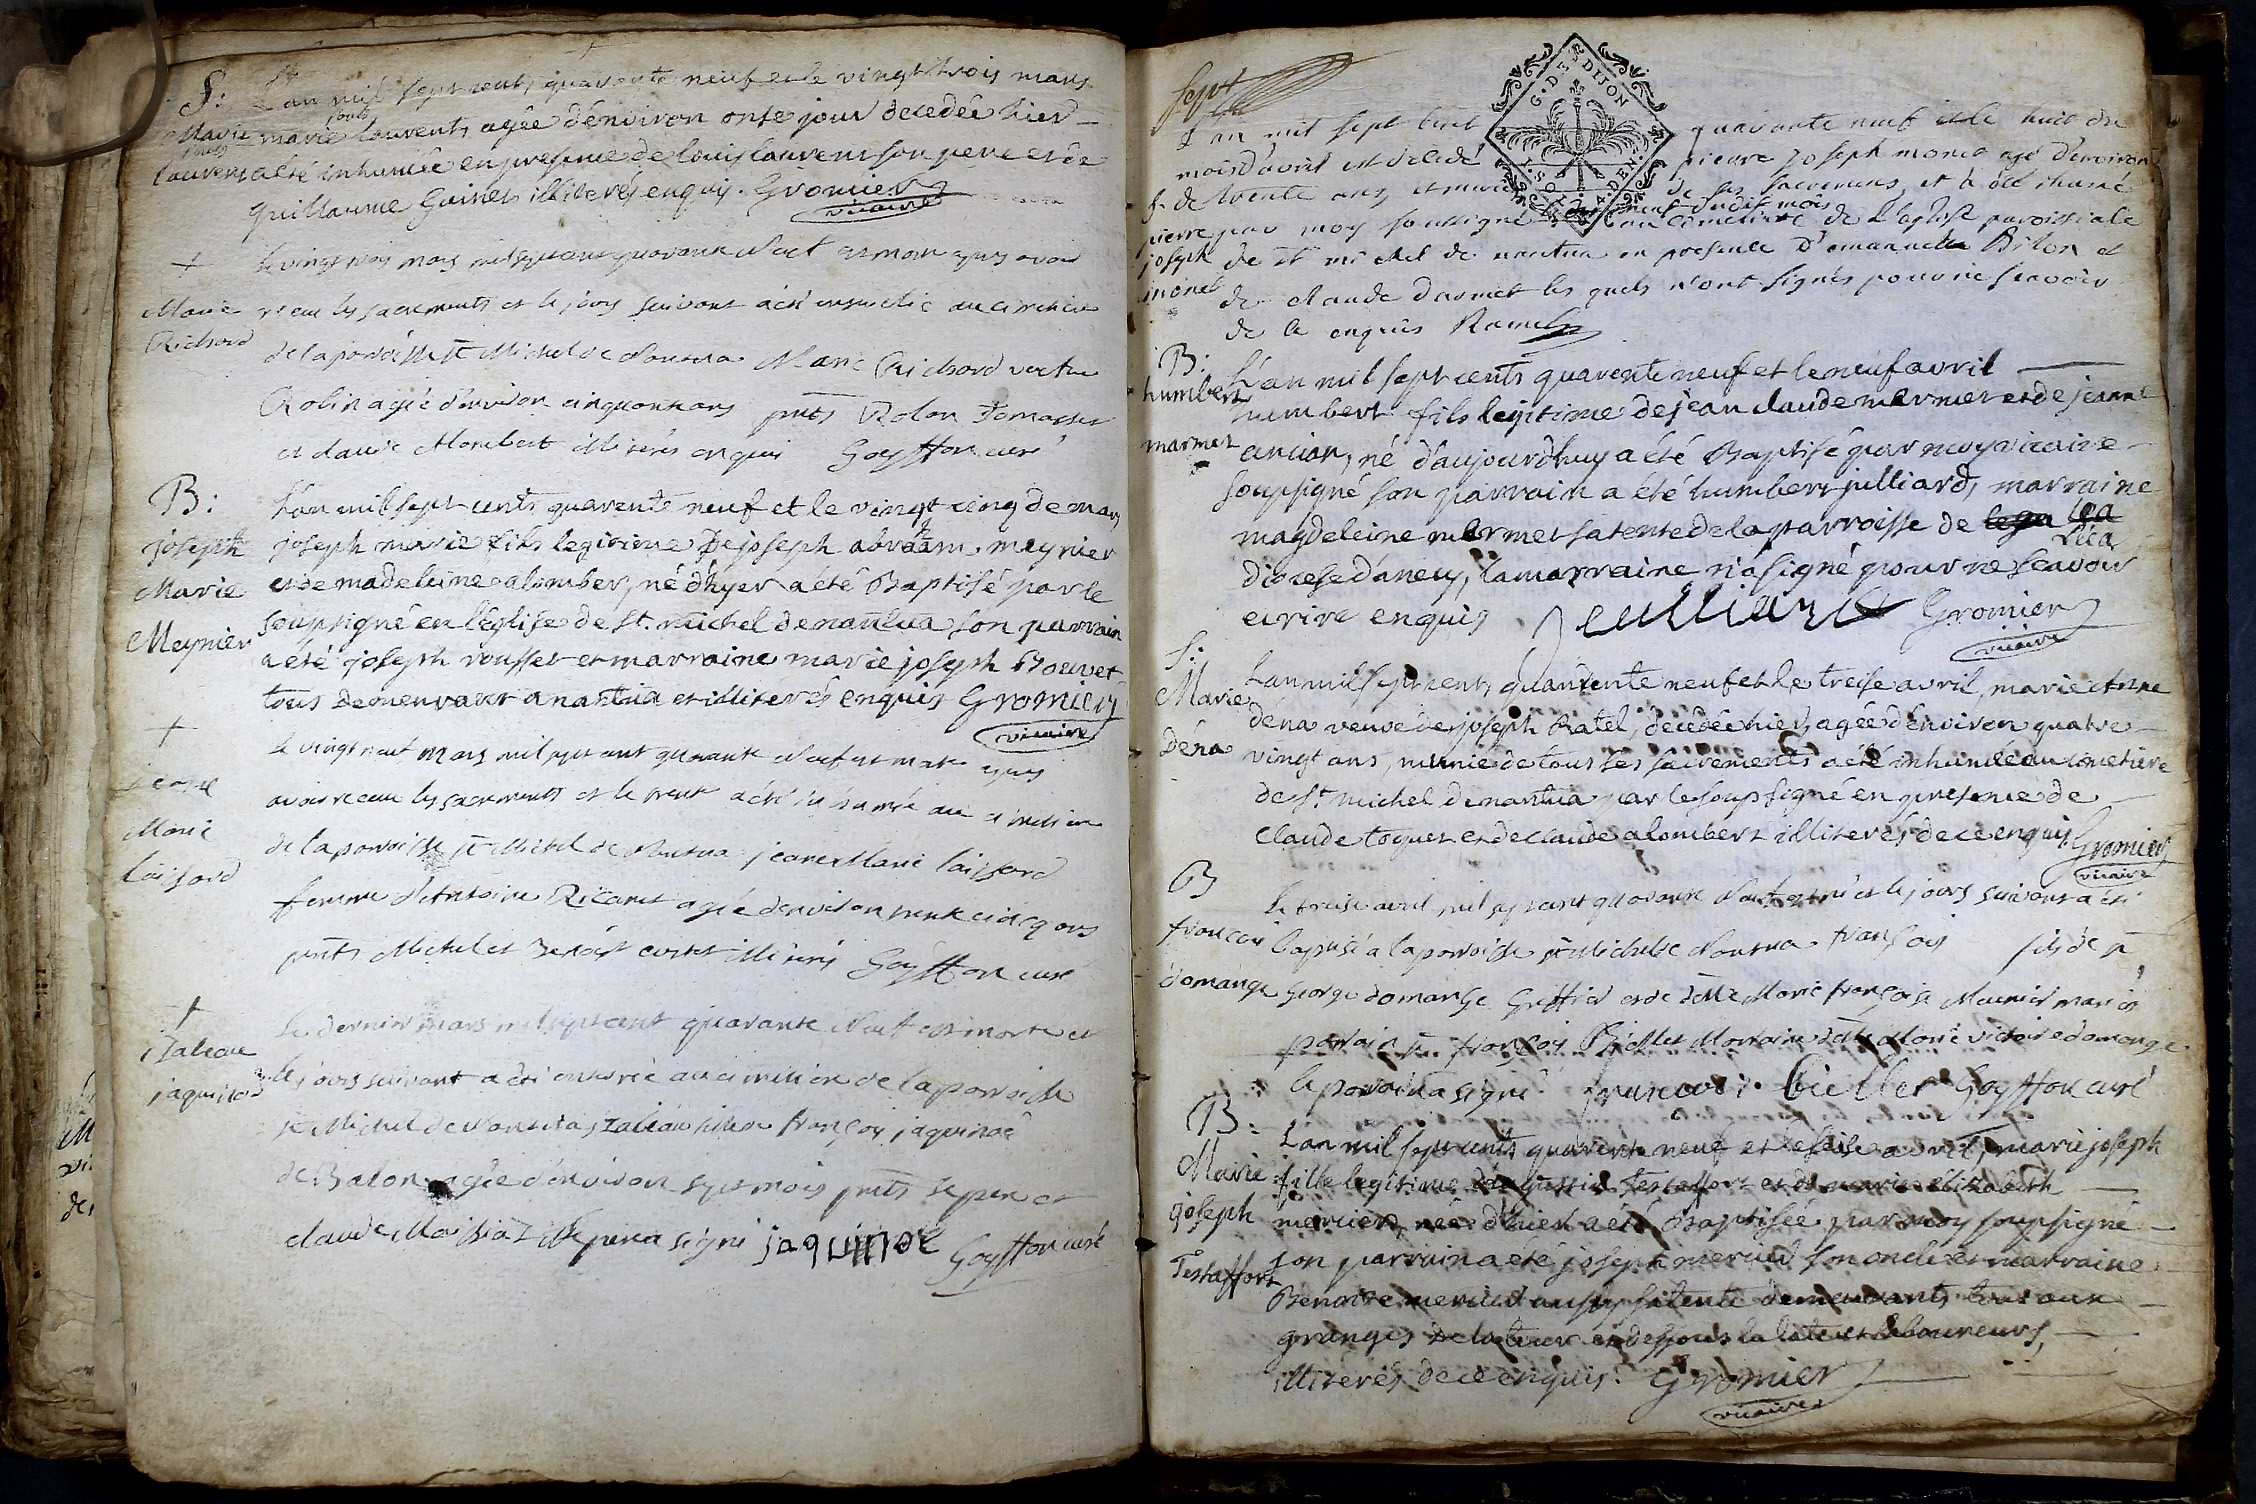 S: L'an mil sept cents quarente neuf et le vingt trois mars
Marie marie laurents agée d'environ onse jour decedée hier
laurens a été inhumée en presence de louis laurent son pere et de
Guillaume Guinet illiterés enquis. Gromier
vicaire
+ le vingt trois mars mil sept cent quarante neuf est morte apres avoir
Marie receu les sacrements et le jours suivant a été ensevelie au cimetiere
Richard de la paroisse st Michel de Nantua Marie Richard veuve
Robin agée d'environ cinquante ans pnts
et claude Alombert illiterés enquis Goyffon curé
B: L'an mil sept cents quarente neuf et le vingt cinq de mars
joseph joseph marie fils legitime de joseph abraam meynier
Marie et de madeleine alomber, né d'hyer a été Baptisé par le
Meynier soupsigné en l'eglise de St. michel de nantua son parrain
a été joseph rousset et marraine marie joseph Bouvet
tous demeurants a nantua et illiterés enquis Gromier
vicaire
+ le vingt neuf mars mil sept cent quarante neuf est morte apres
jeane avoir receu les sacrements et le trente a été inhumée au cimetiere
Marie de la paroisse st Michel de Nantua jeane Marie laissard
laissard femme d'Antoine Ricaret agée d'environ trente cincq ans
pnts Michel et Benoist illiterés Goyffon curé
+ Le dernier mars mil sept cent quarante neuf est morte et
jaquinod le jours suivant a été enterrée au cimetiere de la paroisse
st Michel de Nantua fille a françois jaquinod
agée d'environ sept mois pnts le pere et
claude le pere a signé jaquinod Goyffon curé
sept
G. DE DIJON
L'an mil sept cent quarante neuf et le huit du
mois d'avril est decedé pierre joseph monet agé d'environ
S. de trente ans, et muni de ses sacremens, et a été inhumé
pierre par moy soussigné le neuf dudit mois au cimetiere de l'eglise paroissiale
joseph de st michel de nantua en presence d'emanuel et
monet de claude darmet les quels n'ont signés pour ne scavoir
de ce enquis Ramel
B: L'an mil sept cents quarente neuf et le neuf avril
humbert humbert fils legitime de jean claude mermet et de jeanne
marmet ancian, né d'aujourd'huy a été Baptisé par moy vicaire
soupsigné son parrain a été humbert julliard, marraine
magdeleine mermet sa tente de la parroisse de
diocese d'anecy, la marraine n'a signé pour ne scavoir
ecrire enquis Jeulliard Gromier
vicaire
S: L'an mil sept cents quarente neuf et le treise avril, marie Anne
Marie déna veuve de joseph Ratel, decedée hier, agée d'environ quatre
Déna vingt ans, munie de tous les sacrements a été inhumée au cimetiere
de St michel de nantua par le soupsigné en presence de
Claude toquet et de claude alombert illiterés de ce enquis. Gromier
vicaire
B Le treise avril mil sept cent quarante neuf est né et le jours suivant a été
françois baptisé a la paroisse st Michel de Nantua françois fils de sr
domange George domange Greffier et de dlle Marie françoise Meunier mariés
parrain sr françois Biellet Marraine dlle Marie victoire domange.
le parrain a signé. francois Bieller Goyffon curé
B: L'an mil sept cents quarente neuf et le seise avril, marie joseph
Marie fille legitime d'augustin Testaffort et de marie elisabeth
joseph mercier, née d'hier a été Baptisée par moy soupsigné
Testaffort son parrain a été joseph mercier son oncle et marraine
Benoite mercier aussy sa tente demeurants tous aux
granges et laboureurs,
illiterés de ce enquis. Gromier
vicaire